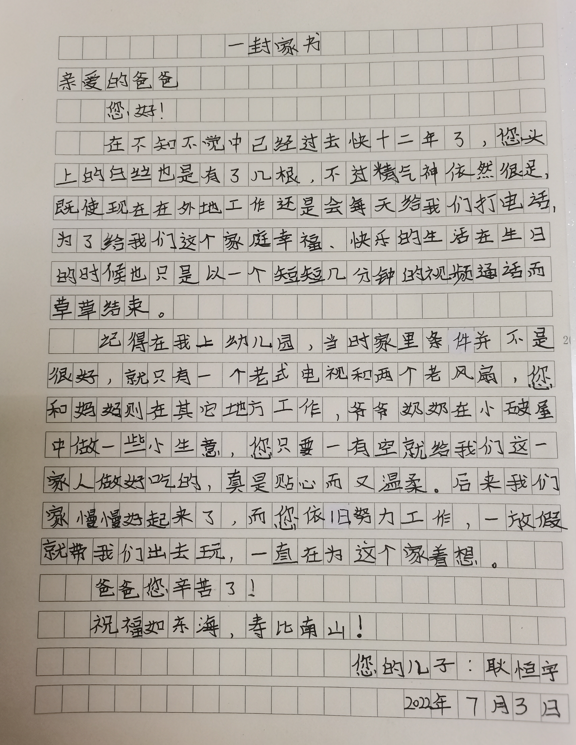 一封家书
亲爱的爸爸
您好!
在不知不觉中已经过去快十二年了，您头
上的白丝也是有了几根，不过精气神依然很足，
既使现在在外地工作还是会每天给我们打电话，
为了给我们这个家庭幸福、快乐的生活在生日
的时候也只是以一个短短几分钟的视频通话而
草草结束。
记得在我上幼儿园，当时家里条件并不是
很好，就只有一个老式电视和两个老风扇，您
和妈妈则在其它地方工作，爷爷奶奶在小破屋
中做一些小生意，您只要一有空就给我们这一
家人做好吃的，真是贴心而又温柔。后来我们
家慢慢好起来了，而您依旧努力工作，一放假
就带我们出去玩，一直在为这个家着想。
爸爸您辛苦了!
祝福如东海，寿比南山!
您的儿子：耿恒宇
2022年7月3日